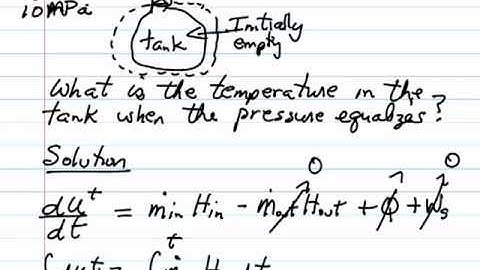 10MPa
Initially
tank empty
What is the temperature in the
tank when the pressure equalizes?
Solution
0 0
dU^t/dt = ṁin Hin - ṁout Hout + Q + Ws
t